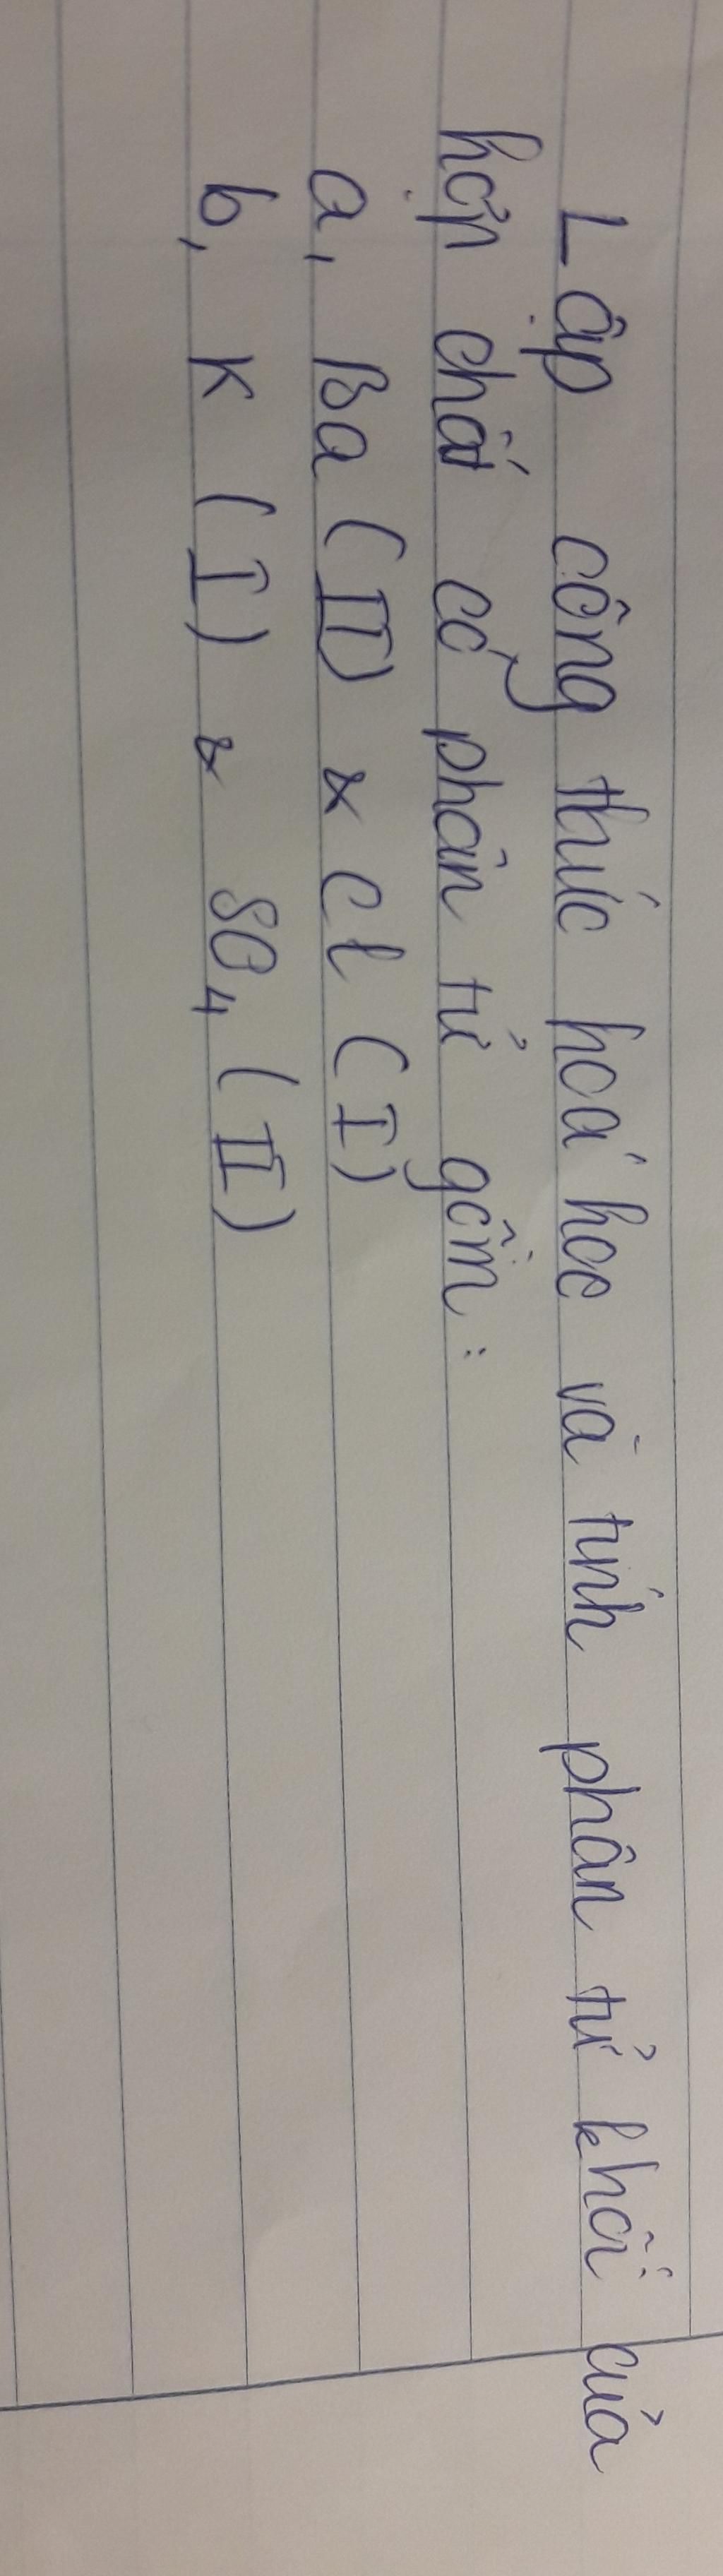 Lập công thức hoá hoc và tính phân tử khối của
hợp chất có phân tử gồm:
a, Ba (II) & Cl (I)
b, K (I) & SO₄ (II)